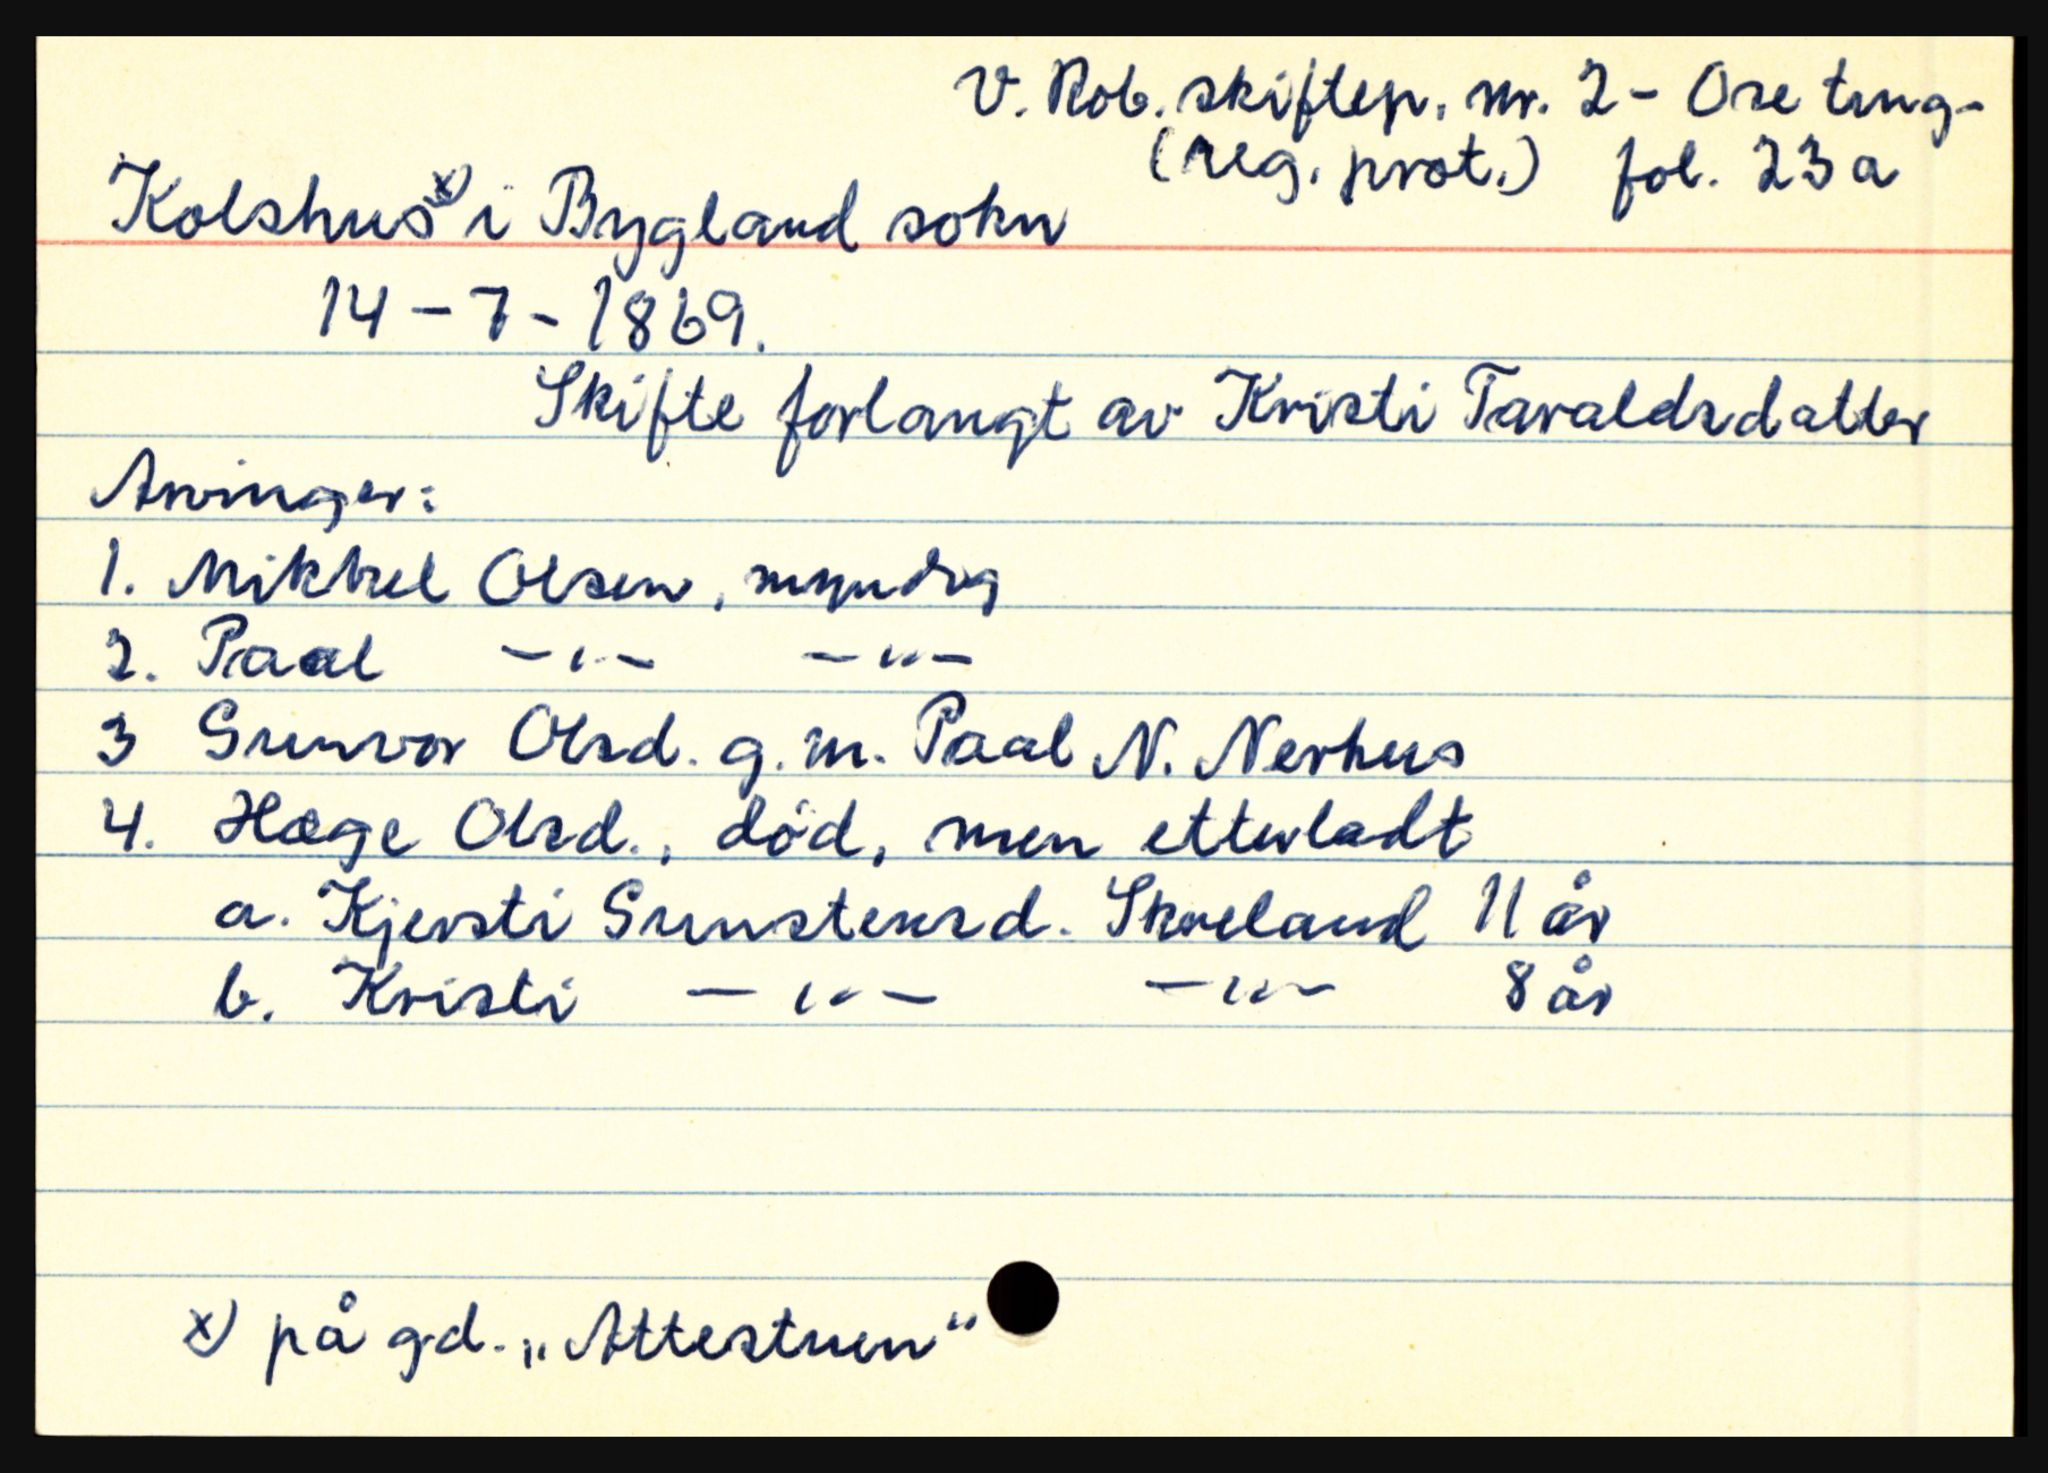 V. Rob. skiftep. nr. 2 - Ose ting-
(reg. prot.) fol. 23a
Kolshus x) i Bygland sokn
14 - 7 - 1869.
Skifte forlangt av Kristi Taraldsdatter
Arvinger:
1. Mikkel Olsen, myndig
2. Paal —"— —"—
3 Gunvor Olsd. g.m. Paal N. Nerhus
4. Hæge Olsd., död, men etterladt
a. Kjersti Gunstensd. Skreland 11 år
b. Kristi —"— —"— 8 år
x) på gd. „Attestuen“